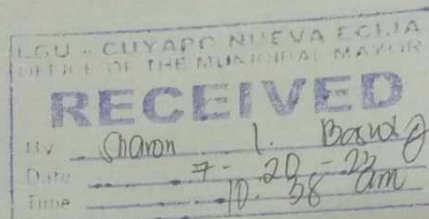 LGU - CUYAPO NUEVA ECIJA
OFFICE OF THE MUNICIPAL MAYOR
RECEIVED
By Sharon I.
Date 7-20-23
Time 10:38 am